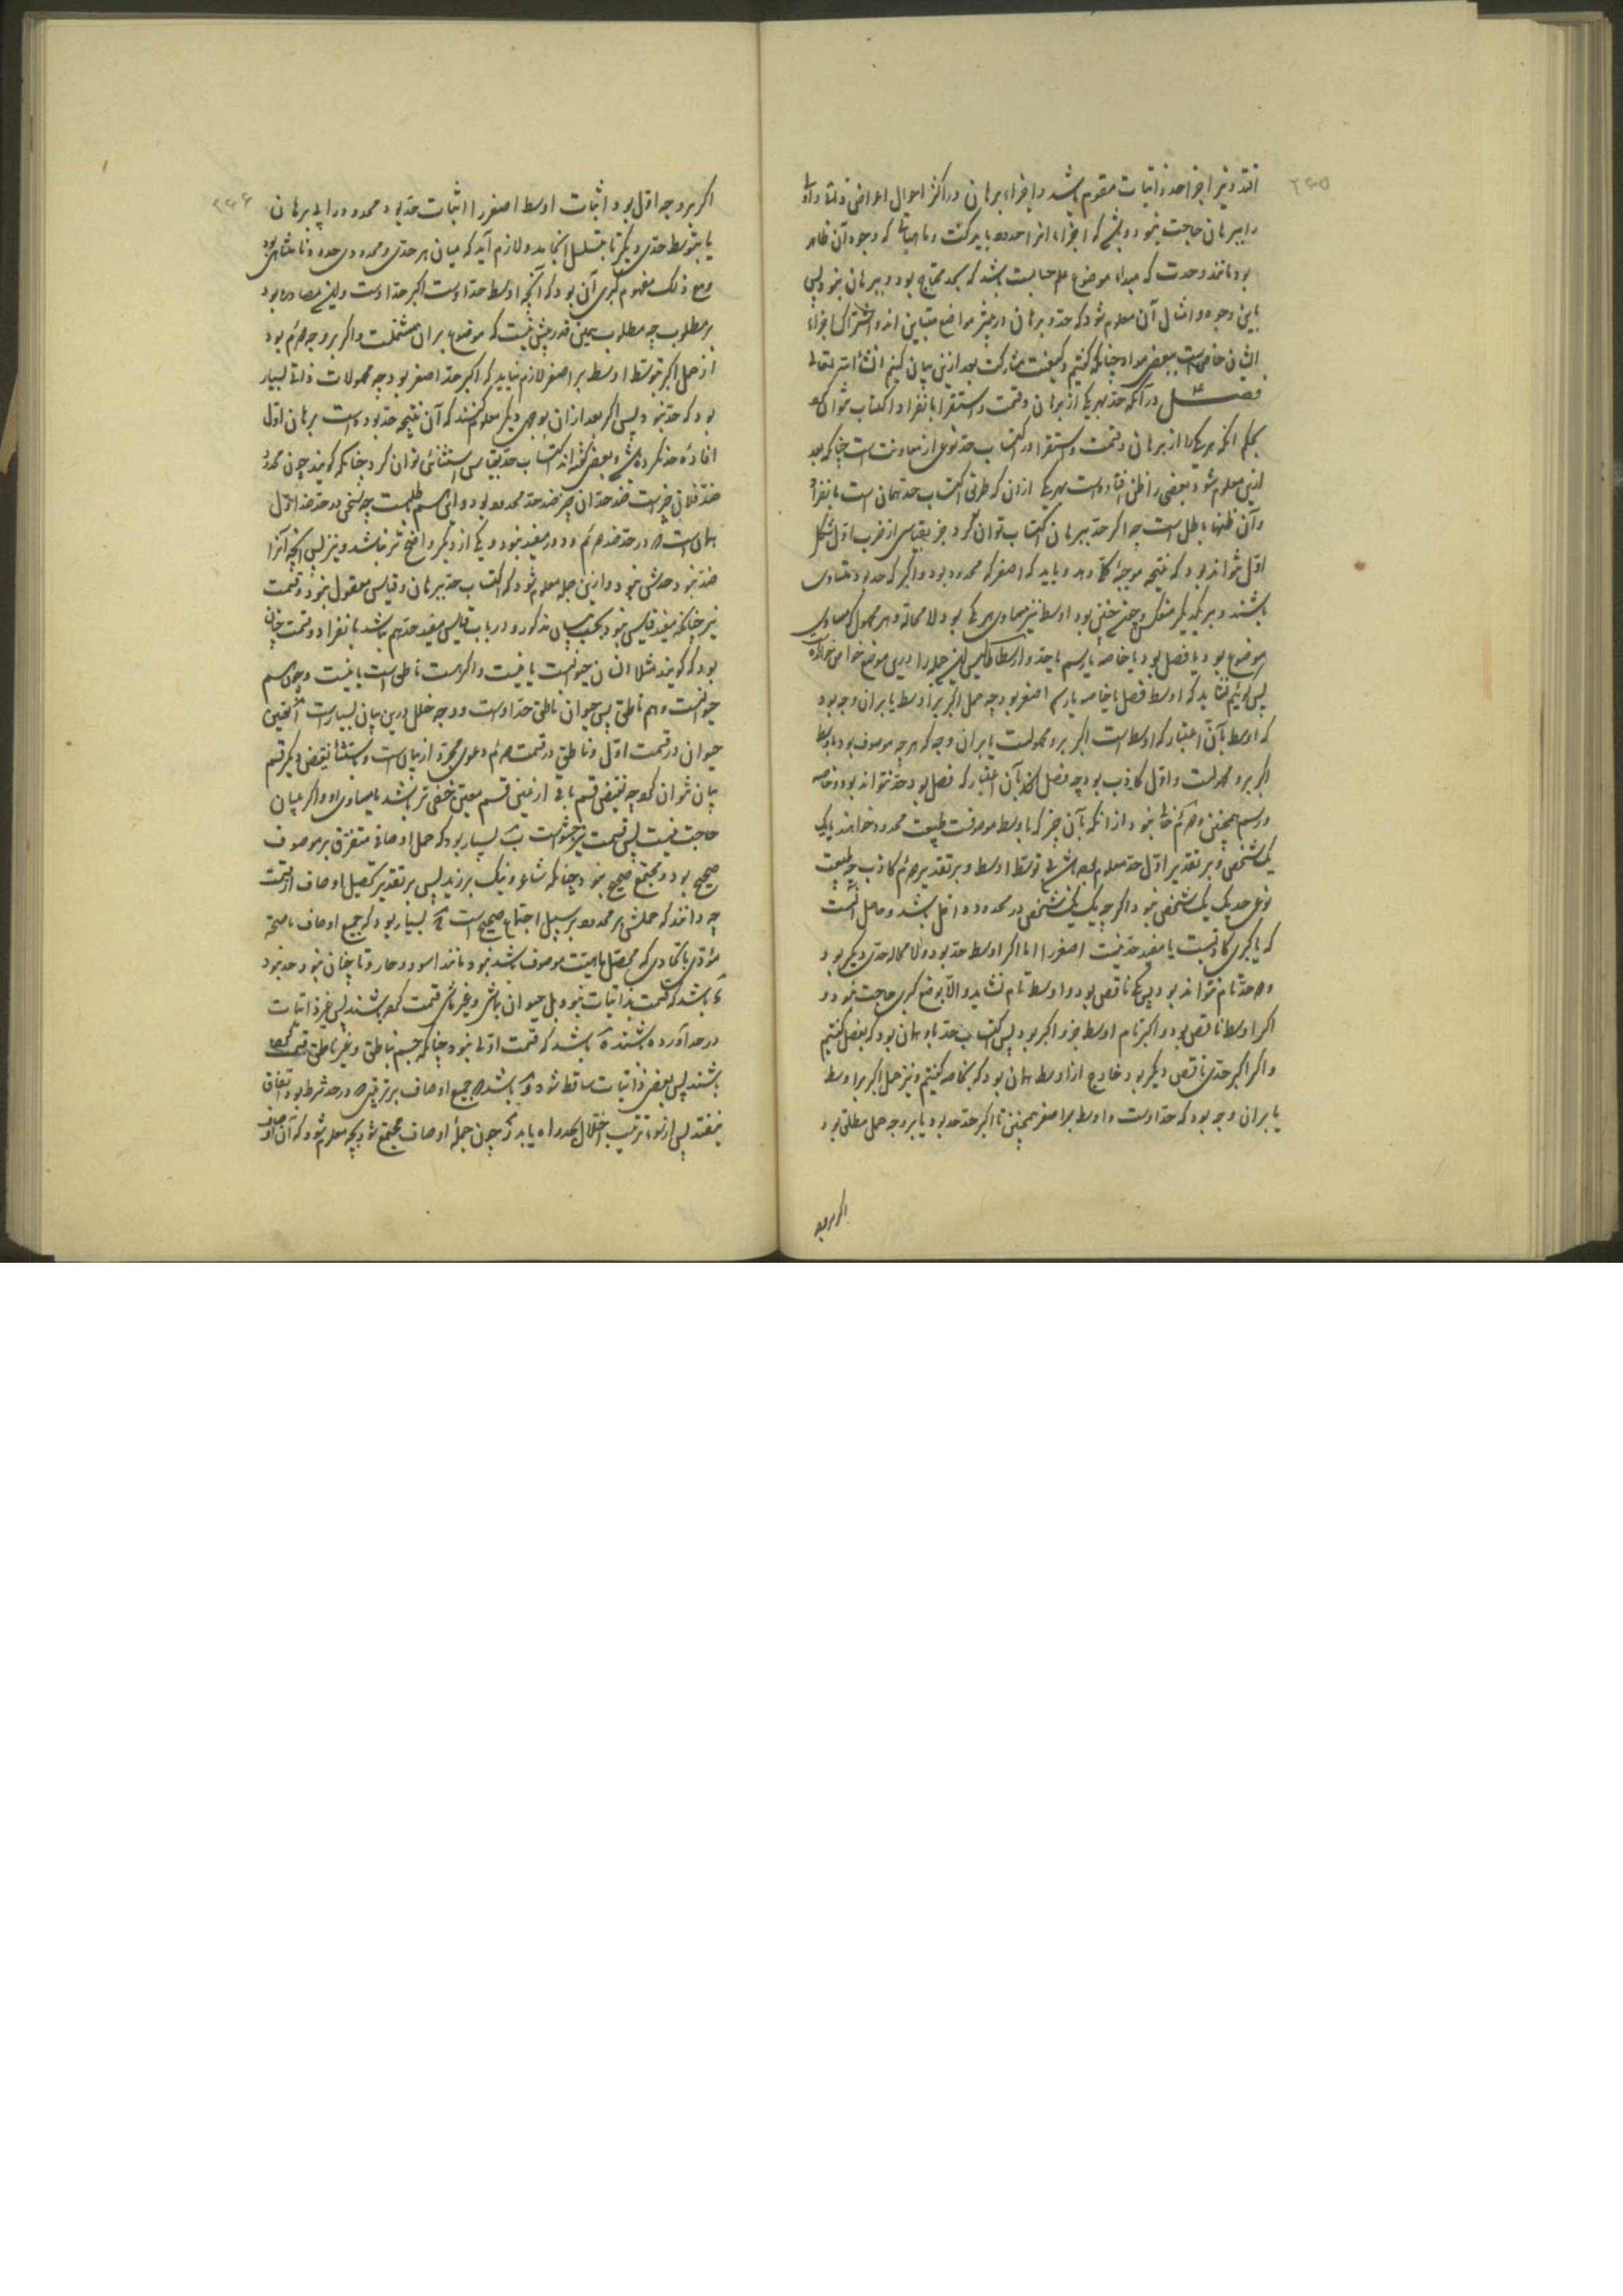 افتد و نیز اجزا حد ذاتیات مقوم باشد و اجزاء برهان در اکثر احوال اعراض ذاتی و اولی
را ببرهان حاجت نبود و بعضی که اجزاء انرا حدود باید گفت و ماهیاتی که وجود آن ظاهر
بود مانند وحدت که مبداء موضوع علم حسابست باشد که بحد محتاج بود و ببرهان نبود پس
باین وجوه و امثال آن معلوم شود که حد و برهان در بیشتر مواضع متباین اند و اشتراک اجزاء
ایشان خاص است ببعضی مواد چنانکه گفتیم و کیفیت مشارکت بعد ازین بیان کنیم انشاء الله تعالی
فصل در آنکه حد بهر یکی از برهان و قسمت و استقرا بانفراد اکتساب نتوان کرد
بحکم آنکه هر یکی را از برهان و قسمت و استقرا در اکتساب حد نوعی از معاونت است چنانکه بعد
ازین معلوم شود بعضی را ظن افتاده است بهر یکی از ان که طریق اکتساب حد همان است بانفراد
و آن ظنها باطل است چه اگر حد ببرهان اکتساب توان کرد جز بقیاسی از ضرب اول شکل
اول نتواند بود که نتیجه موجبه کلی دهد و باید که اصغر که محدود بود و اکبر که حد بود متساوی
باشند و بر یکدیگر منعکس و چون چنین بود اوسط نیز مساوی هر یکی بود لا محاله و هر محمول که مساوی
موضوع بود یا فصل بود یا خاصه یا رسم یا حد و ارسطاطالیس این جمله را درین موضع خواص خوانده
پس گوئیم نشاید که اوسط فصل یا خاصه یا رسم اصغر بود چه حمل اکبر بر اوسط یا بران وجه بود
که اوسط بآن اعتبار که اوسط است اکبر برو محمولست یا بران وجه که هر چه موصوف بود باوسط
اکبر برو محمولست و اول کاذب بود چه فصل بآن اعتبار که فصل بود حد نتواند بود و خاصه
و رسم همچنین و دوم خالی نبود از انکه بآن چیز که باوسط موصوفست طبیعت محدود خواهند یا یک
یک شخص و بر تقدیر اول حد معلوم بود توسط اوسط و بر تقدیر دوم کاذب چه طبیعت
نوع حد یک یک شخص نبود اگرچه یک یک شخص در محدود داخل باشد و حاصل آنست
که یا کبری کاذبست یا مفید حد نیست اصغر را اما اگر اوسط حد بود و لا محاله حدی دیگر بود
و دو حد تام نتواند بود پس یکی ناقص بود و اوسط تام نشاید و الا بوضع کبری حاجت نبود و
اگر اوسط ناقص بود و اکبر تام اوسط جزو اکبر بود پس اکتساب حد باو همان بود که بفصل گفتیم
و اگر اکبر حدی ناقص دیگر بود خارج از اوسط همان بود که بخاصه گفتیم و نیز حمل اکبر بر اوسط
یا بران وجه بود که حد اوست و اوسط بر اصغر همچنین تا اکبر حد حد بود یا بر وجه حمل مطلق بود
اگر بر وجه
اگر بر وجه اول بود اثبات اوسط اصغر را اثبات حد بود محدود را بی برهان
یا بتوسط حدی دیگر تا بتسلسل انجامد و لازم آید که میان هر حدی و محدودی حدود نامتناهی بود
و مع ذلک مفهوم کبری آن بود که آنچه اوسط حد اوست اکبر حد اوست و این مصادره بود
بر مطلوب چه مطلوب همین قدر بیش نیست که موضوع بران مشتملست و اگر بر وجه دوم بود
از حمل اکبر بتوسط اوسط بر اصغر لازم نیاید که اکبر حد اصغر بود چه محمولات ذاتی بسیار
بود که حد نبود پس اگر بعد ازان بوجهی دیگر معلوم کنند که آن نتیجه حد بوده است برهان اول
افاده حد نکرده باشد و بعضی گفته اند اکتساب حد بقیاس استثنائی توان کرد چنانکه گویند چون محدود
ضد فلان چیز است ضد حد آن چیز ضد حد محدود بود و این هم باطلست چه سخن در حد ضد اول
همان است که در حد ضد دوم و دور مفید نبود و یکی از دیگر واضح تر نباشد و نیز پس آنچه آنرا
ضد نبود حدش نبود و ازین جمله معلوم شود که اکتساب حد ببرهان و قیاس معقول نبود و قسمت
نیز چنانکه مفید قیاس نبود بحسب بیان مذکور در باب قیاس مفید حد هم نباشد بانفراد و قسمت چنان
بود که گویند مثلا انسان حیوانست یا نیست و اگر هست ناطق است یا نیست و چون هم
حیوانست و هم ناطق پس حیوان ناطق حد اوست و وجه خلل درین بیان بسیار است آ تعیین
حیوان در قسمت اول و ناطق در قسمت دوم دعوی مجرد از بیان است و باستثناء نقیض دیگر قسم
بیان نتوان کرد چه نقیض قسم باقی از عین قسم معین خفی تر باشد یا مساوی او و اگر ببیان
حاجت نیست پس قسمت نیز حشو است ب بسیار بود که حمل اوصاف متفرق بر موصوف
صحیح بود و مجتمع صحیح نبود چنانکه شاعر و نیک بر زید پس بر تقدیر تحصیل اوصاف از قسمت
چه دانند که حملش بر محدود بر سبیل اجتماع صحیح است ج بسیار بود که جمیع اوصاف با صحت
مؤدی باتحادی که محصل ماهیت موصوف باشد نبود مانند اسود و حار و تا چنان نبود حد نبود
د باشد که قسمت بذاتیات نبود بل حیوان بماشی و غیر ماشی قسمت کرده باشند پس غیر ذاتیات
در حد آورده باشند ه باشد که قسمت اولی نبود چنانکه جسم بناطق و غیر ناطق قسمت کرده
باشند پس بعضی ذاتیات ساقط شود و باشد که جمیع اوصاف بر ترتیبی که در حد شرط بود اتفاق
نیفتد پس از سوء ترتیب اختلال بحد راه یابد ز چون جمله اوصاف مجتمع شود بچه معلوم شود که آن اوصاف